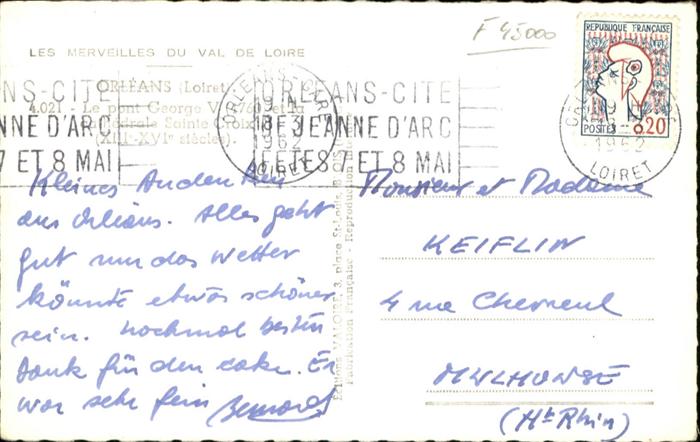 F 45000
LES MERVEILLES DU VAL DE LOIRE
ORLÉANS (Loiret)
4.021 - Le pont George V
Sainte Croix
(XIIIe-XVIe siècles).
NS-CITE
NNE D'ARC
7 ET 8 MAI
ORLEANS-GARE
19 H
18-3
1962
LOIRET
ORLEANS-CITE
DE JEANNE D'ARC
FETES 7 ET 8 MAI
REPUBLIQUE FRANÇAISE
POSTES 0.20
1962
LOIRET
Kleines Andenken
aus Orléans. Alles geht
gut nur das Wetter
könnte etwas schöner
sein. Nochmal besten
Dank für den cake. Er
war sehr fein Bernard
Editions VALOIRE, 3, place St-Louis
Fabrication Française - Reproduction
Monsieur et Madame
KEIFLIN
4 rue Chevreul
MULHOUSE
(Ht Rhin)